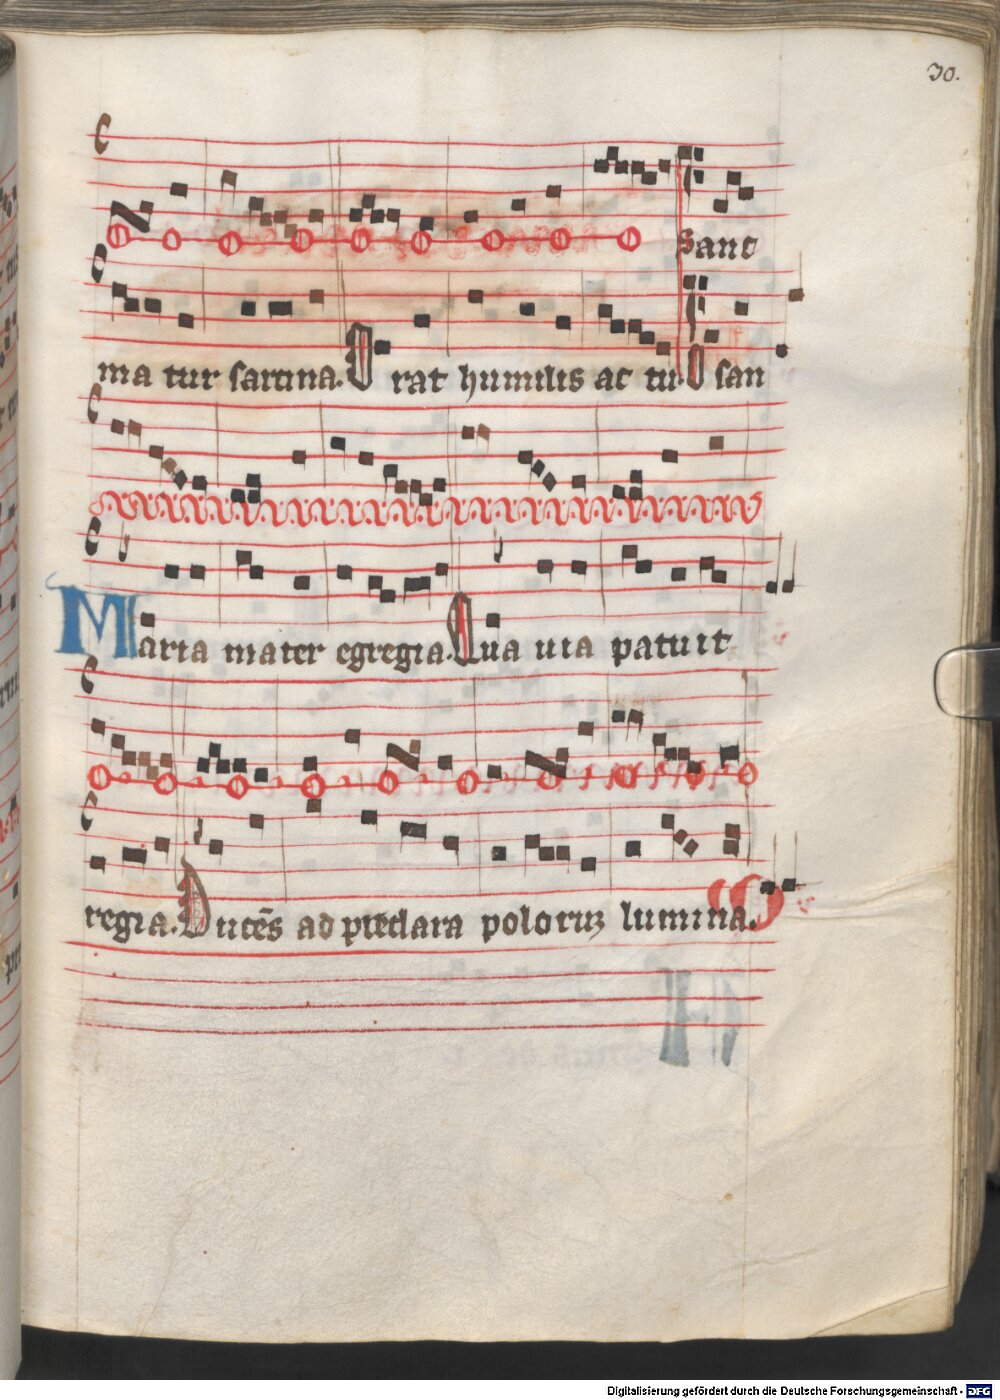 30.
Sanc
ma tur sarcina. O rat humilis ac tu. O san
Maria mater egregia. Qua uia patuit
regia. Ducēs ad p̄clara poloruꝫ lumina.
Digitalisierung gefördert durch die Deutsche Forschungsgemeinschaft - DFG